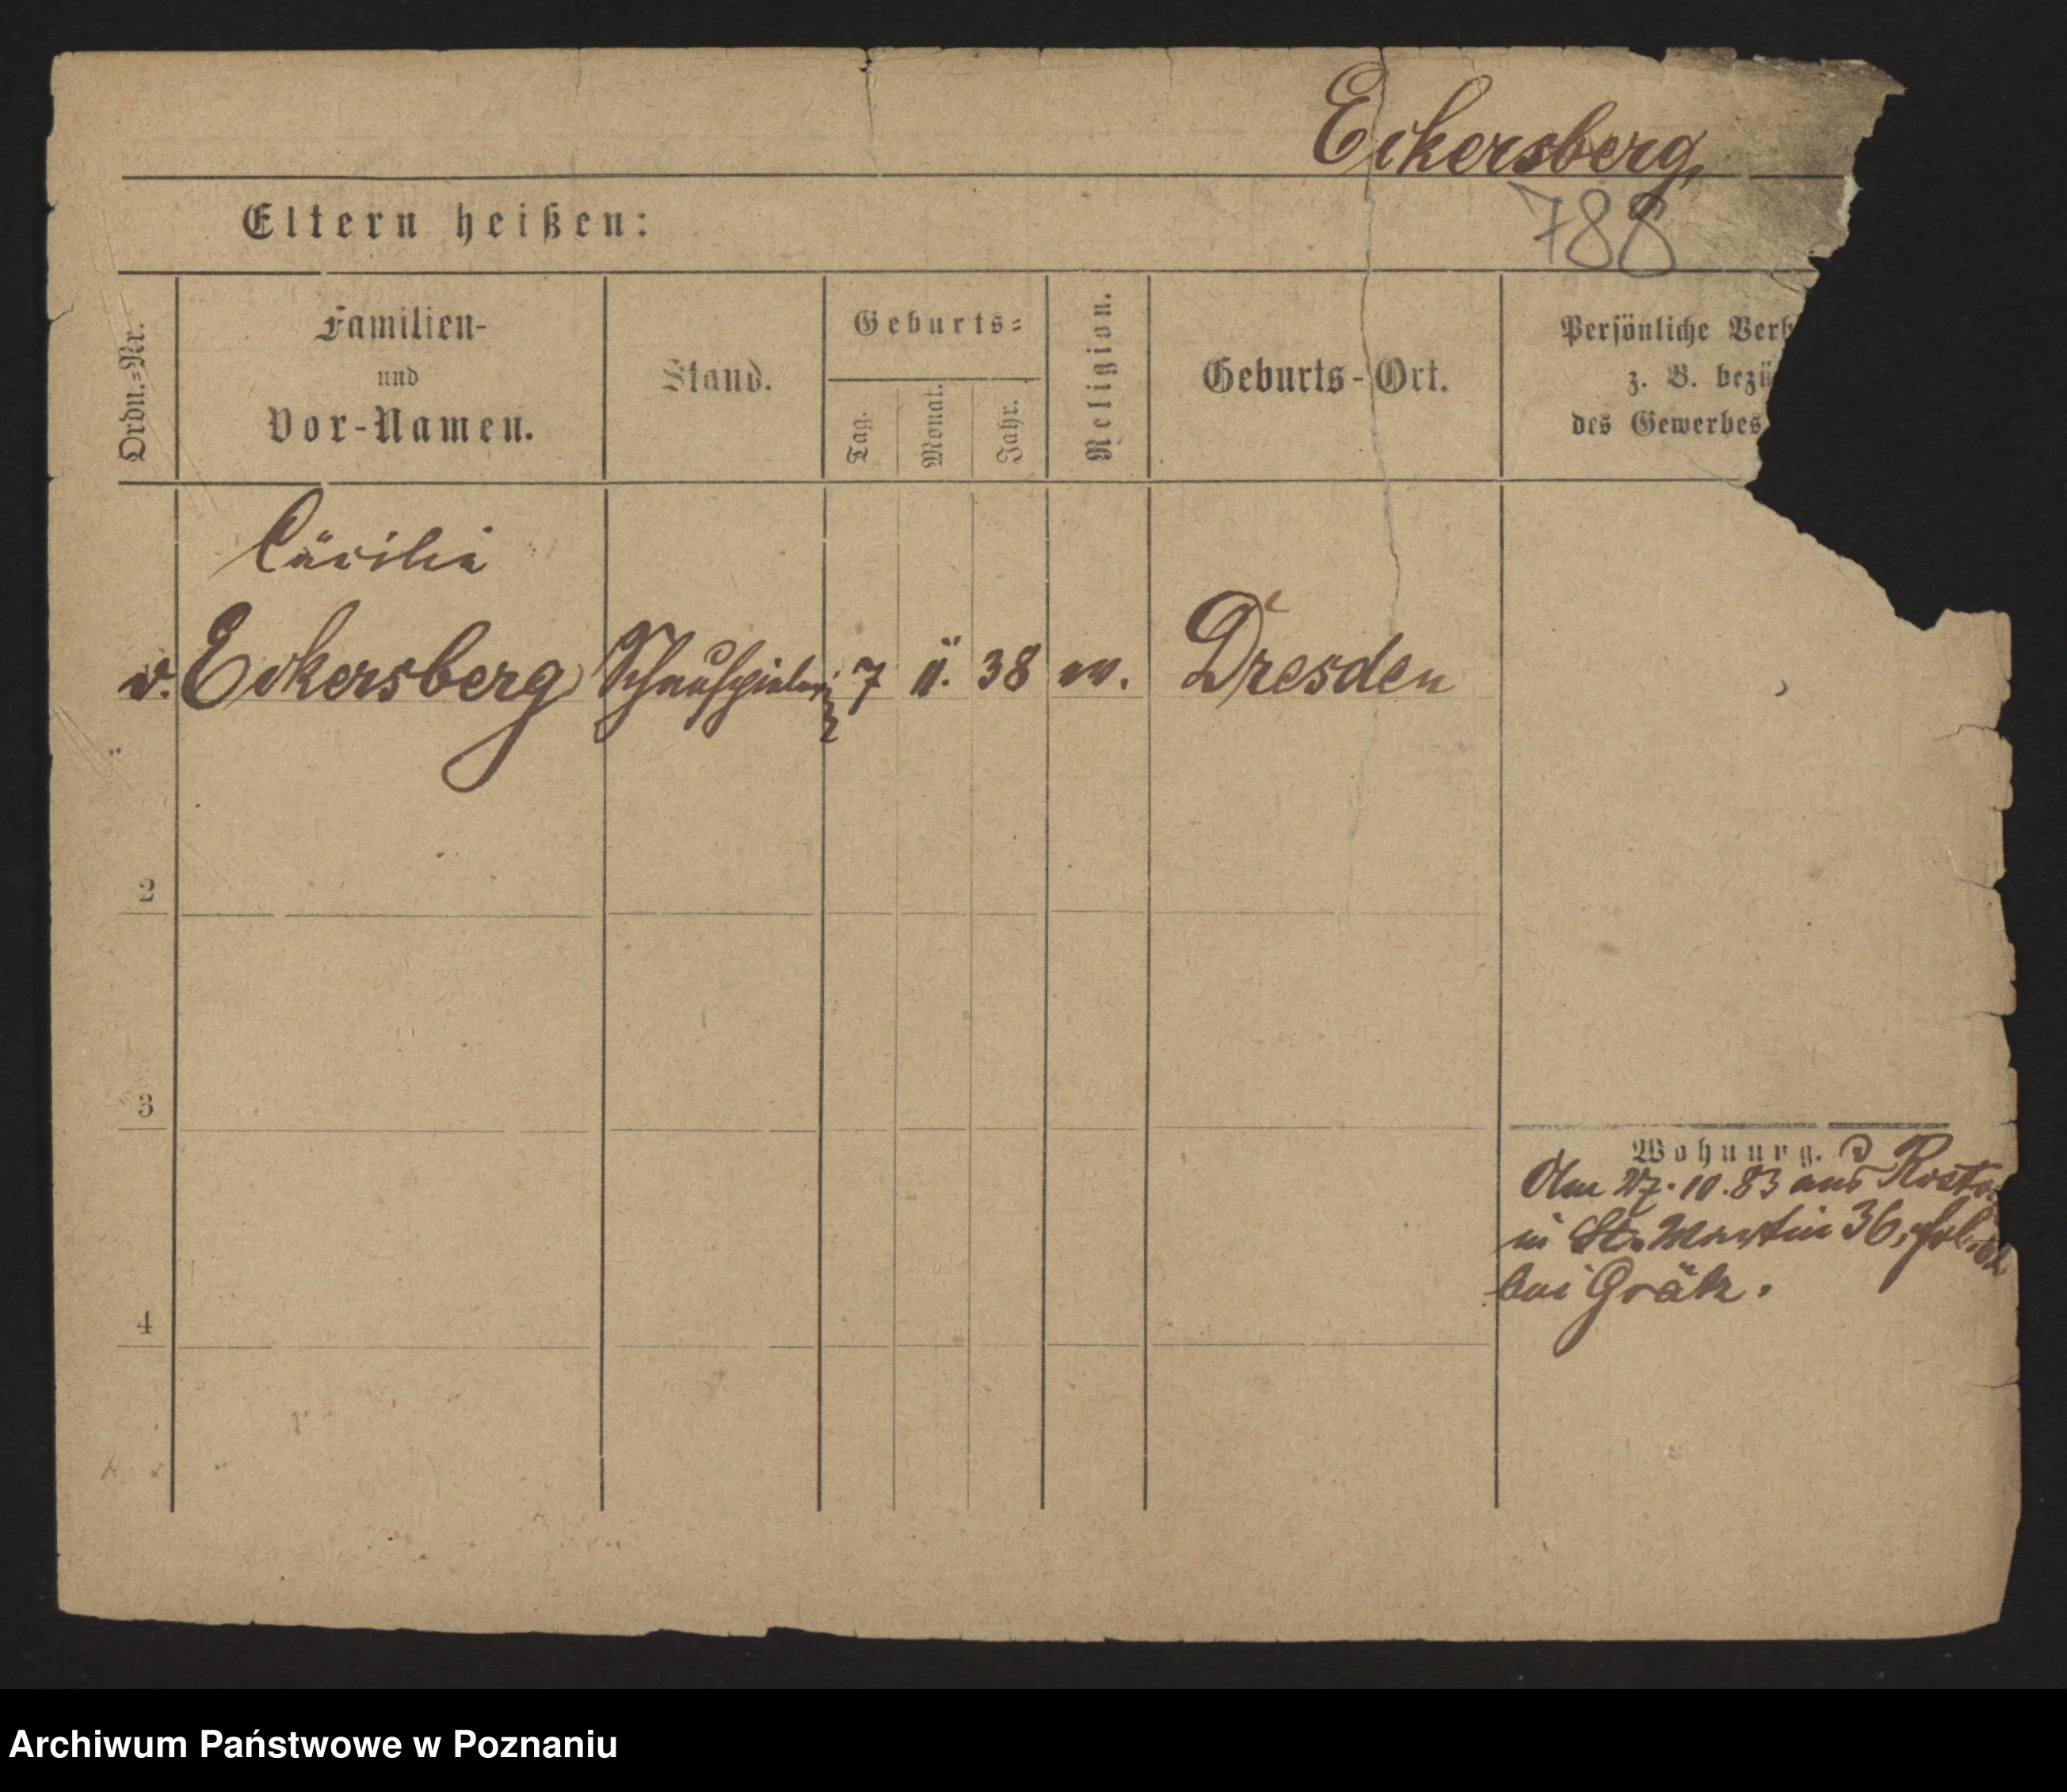 Eckersberg,
Eltern heißen:
788
Ordn.=Nr.
Familien-
und
Vor-Namen.
Stand.
Geburts=
Tag.
Monat.
Jahr.
Religion.
Geburts-Ort.
Persönliche Verh
z. B. bezü
des Gewerbes
Cäcilie
v. Eckersberg Schauspielerin 7 11. 38 ev. Dresden
2
3
4
Wohnung.
Am 27.10.83 aus Rosto
in St. Martin 36,
bei Grätz.
Archiwum Państwowe w Poznaniu